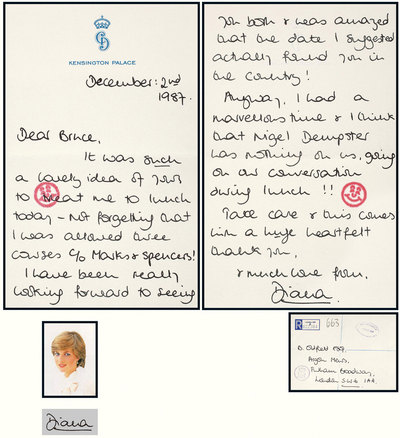 KENSINGTON PALACE
December: 2nd
1987.
Dear Bruce,
It was such
a lovely idea of yours
to treat me to lunch
today - not forgetting that
I was allowed three
courses c/o Marks & Spencers!
I have been really
looking forward to seeing
you both & was amazed
that the date I suggested
actually found you in
the country!
Anyway, I had a
marvellous time & I think
that Nigel Dempster
has nothing on us, going
on our conversation
during lunch !!
Take care & this comes
with a huge heartfelt
thank you,
& much love from,
Diana.
R
663
B. Oldfield Esq.
Argon Mews
Fulham Broadway,
London SW6 1AA
Diana